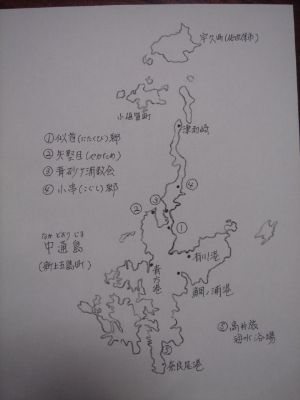 宇久町(佐世保市)
小値賀町
津和崎
①似首(にたくび)郷
②矢堅目(やがため)
③青砂ヶ浦教会
④小串(こぐし)郷
④
②
③
①
なかどおりじま
中通島
(新上五島町)
有川港
青方港
鯛ノ浦港
⑤高井旅
海水浴場
⑤
奈良尾港